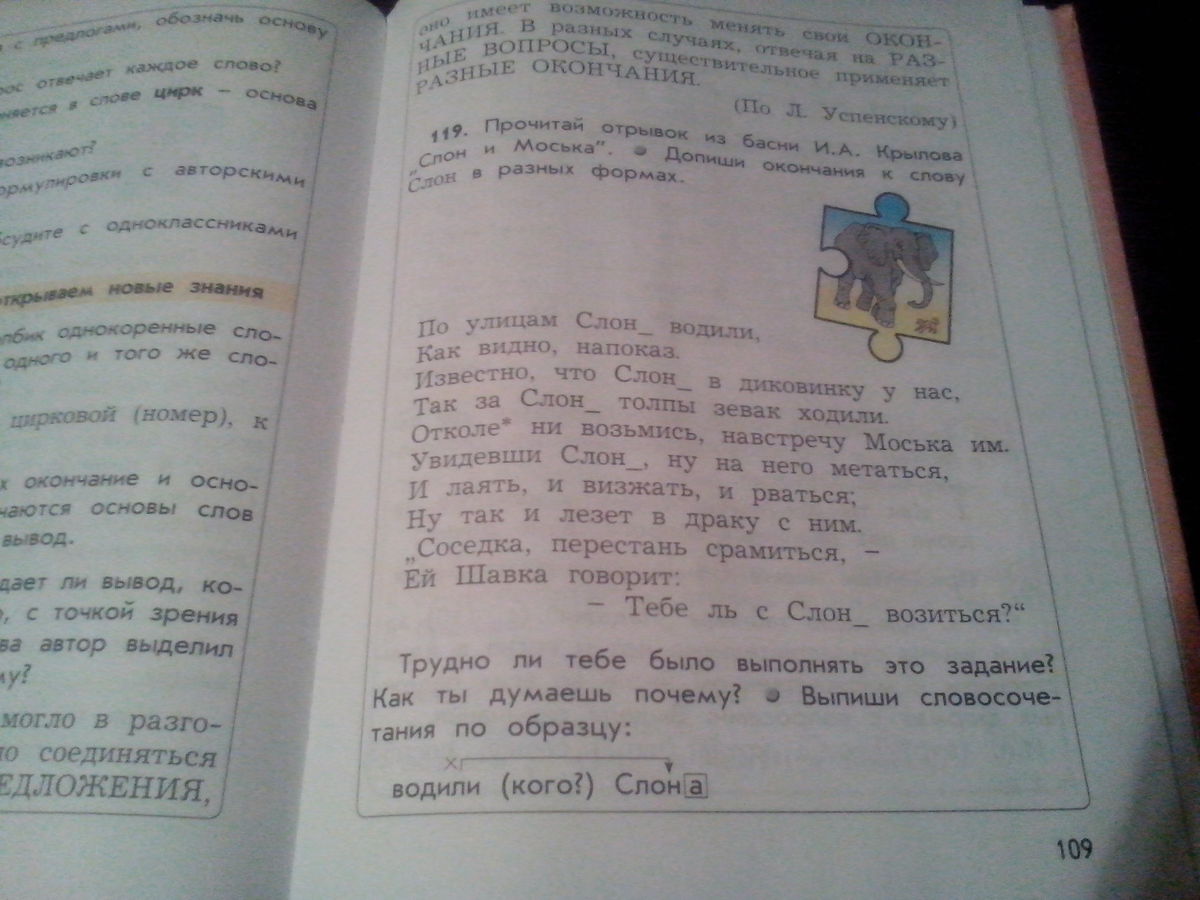 с предлогами, обозначь основу
отвечает каждое слово?
няется в слове цирк – основа
возникают?
ормулировки с авторскими
судите с одноклассниками
открываем новые знания
лбик однокоренные сло-
одного и того же сло-
цирковой (номер), к
х окончание и осно-
чаются основы слов
вывод.
дает ли вывод, ко-
с точкой зрения
ва автор выделил
му?
могло в разго-
но соединяться
ЕДЛОЖЕНИЯ,
оно имеет возможность менять свои ОКОН-
ЧАНИЯ. В разных случаях, отвечая на РАЗ-
НЫЕ ВОПРОСЫ, существительное применяет
РАЗНЫЕ ОКОНЧАНИЯ.
(По Л. Успенскому)
119. Прочитай отрывок из басни И.А. Крылова
„Слон и Моська". ● Допиши окончания к слову
Слон в разных формах.
По улицам Слон_ водили,
Как видно, напоказ.
Известно, что Слон_ в диковинку у нас,
Так за Слон_ толпы зевак ходили.
Отколе* ни возьмись, навстречу Моська им.
Увидевши Слон_, ну на него метаться,
И лаять, и визжать, и рваться;
Ну так и лезет в драку с ним.
„Соседка, перестань срамиться, –
Ей Шавка говорит:
– Тебе ль с Слон_ возиться?"
Трудно ли тебе было выполнять это задание?
Как ты думаешь почему? ● Выпиши словосоче-
тания по образцу:
х
водили (кого?) Слона
109